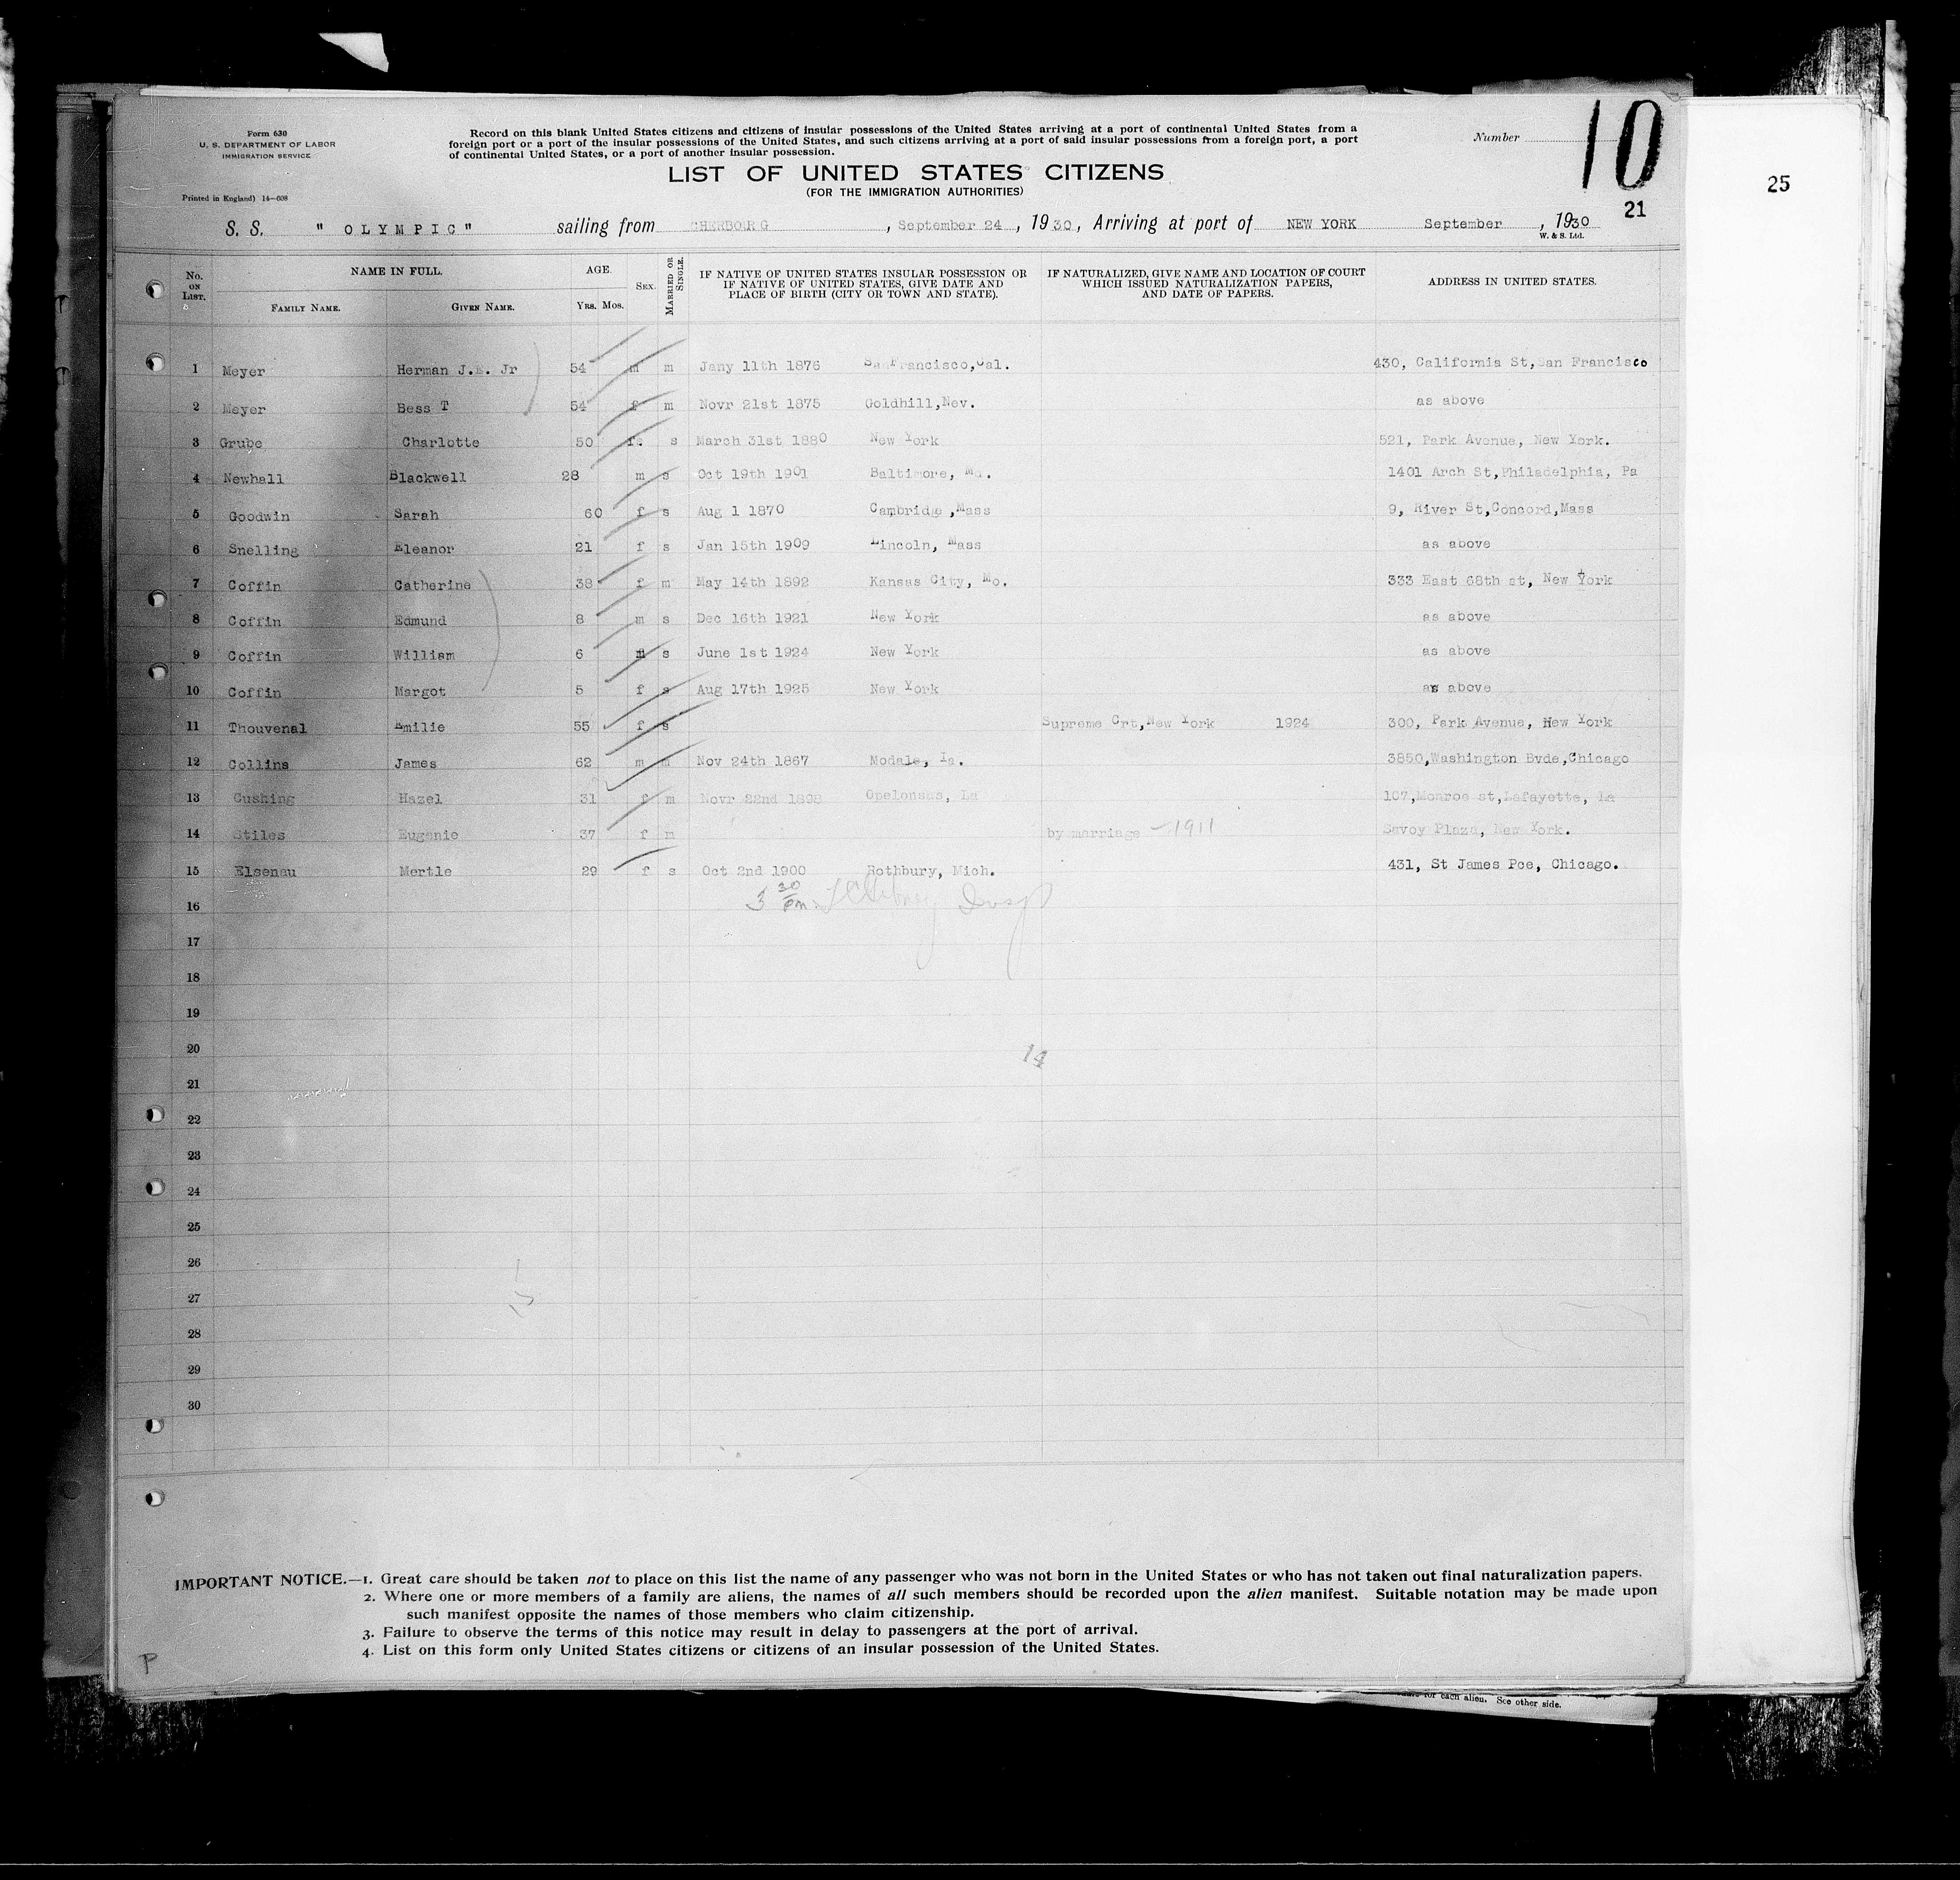 Form 630
U. S. DEPARTMENT OF LABOR
IMMIGRATION SERVICE
Printed in England) 14—608
Record on this blank United States citizens and citizens of insular possessions of the United States arriving at a port of continental United States from a
foreign port or a port of the insular possessions of the United States, and such citizens arriving at a port of said insular possessions from a foreign port, a port
of continental United States, or a port of another insular possession.
Number 10
21
25
LIST OF UNITED STATES CITIZENS
(FOR THE IMMIGRATION AUTHORITIES)
S. S. " OLYMPIC " sailing from CHERBOURG, September 24, 1930, Arriving at port of NEW YORK September, 1930
W. & S. Ltd.
No. ON LIST. NAME IN FULL. FAMILY NAME. GIVEN NAME. AGE. YRS. MOS. SEX. MARRIED OR SINGLE. IF NATIVE OF UNITED STATES INSULAR POSSESSION OR IF NATIVE OF UNITED STATES, GIVE DATE AND PLACE OF BIRTH (CITY OR TOWN AND STATE). IF NATURALIZED, GIVE NAME AND LOCATION OF COURT WHICH ISSUED NATURALIZATION PAPERS, AND DATE OF PAPERS. ADDRESS IN UNITED STATES.
1 Meyer Herman J.E. Jr 54 m m Jany 11th 1876 San Francisco,Cal. 430, California St,San Francisco
2 Meyer Bess T 54 f m Novr 21st 1875 Goldhill,Nev. as above
3 Grube Charlotte 50 f. s March 31st 1880 New York 521, Park Avenue, New York.
4 Newhall Blackwell 28 m s Oct 19th 1901 Baltimore, Md. 1401 Arch St,Philadelphia, Pa
5 Goodwin Sarah 60 f s Aug 1 1870 Cambridge ,Mass 9, River St,Concord,Mass
6 Snelling Eleanor 21 f s Jan 15th 1909 Lincoln, Mass as above
7 Coffin Catherine 38 f m May 14th 1892 Kansas City, Mo. 333 East 68th st, New York
8 Coffin Edmund 8 m s Dec 16th 1921 New York as above
9 Coffin William 6 m s June 1st 1924 New York as above
10 Coffin Margot 5 f s Aug 17th 1925 New York as above
11 Thouvenal Emilie 55 f s Supreme Crt,New York 1924 300, Park Avenue, New York
12 Collins James 62 m m Nov 24th 1867 Modale, Ia. 3850,Washington Bvde,Chicago
13 Cushing Hazel 31 f m Novr 22nd 1898 Opelousas, La 107,Monroe st,Lafayette, La
14 Stiles Eugenie 37 f m by marriage – 1911 Savoy Plaza, New York.
15 Elsenau Mertle 29 f s Oct 2nd 1900 Rothbury, Mich. 431, St James Pce, Chicago.
3 30 pm Insp
16
17
18
19
20
14
21
22
23
24
25
26
27
28
29
30
IMPORTANT NOTICE.—1. Great care should be taken not to place on this list the name of any passenger who was not born in the United States or who has not taken out final naturalization papers.
2. Where one or more members of a family are aliens, the names of all such members should be recorded upon the alien manifest. Suitable notation may be made upon
such manifest opposite the names of those members who claim citizenship.
3. Failure to observe the terms of this notice may result in delay to passengers at the port of arrival.
4. List on this form only United States citizens or citizens of an insular possession of the United States.
P
for each alien. See other side.